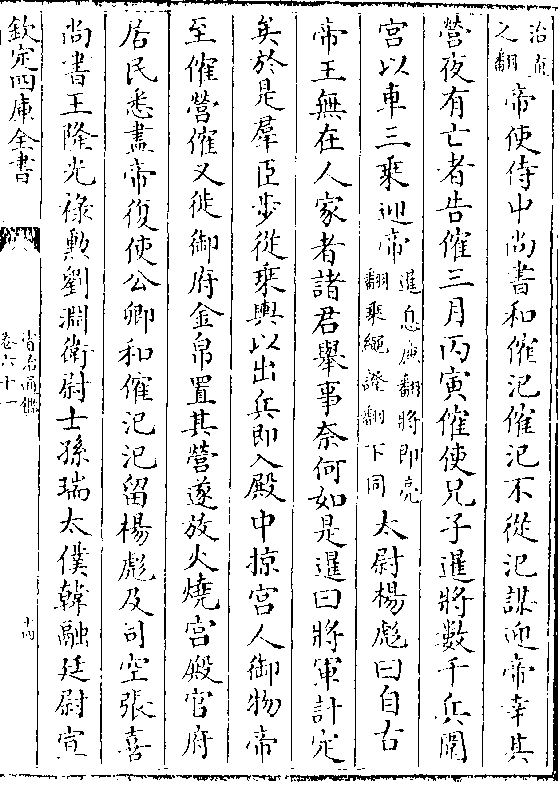 治直之翻帝使侍中尚書和傕汜傕汜不從汜謀迎帝幸其
營夜有亡者告傕三月丙寅傕使兄子暹將數千兵圍
宮以車三乘迎帝暹息廉翻將即亮翻乘繩證翻下同太尉楊彪曰自古
帝王無在人家者諸君舉事奈何如是暹曰將軍計定
矣於是羣臣步從乘輿以出兵即入殿中掠宫人御物帝
至傕營傕又徙御府金帛置其營遂放火燒宮殿官府
居民悉盡帝復使公卿和傕汜汜留楊彪及司空張喜
尚書王隆光祿勲劉淵衛尉士孫瑞太僕韓融廷尉宣
欽定四庫全書
資治通鑑
卷六十一
十四